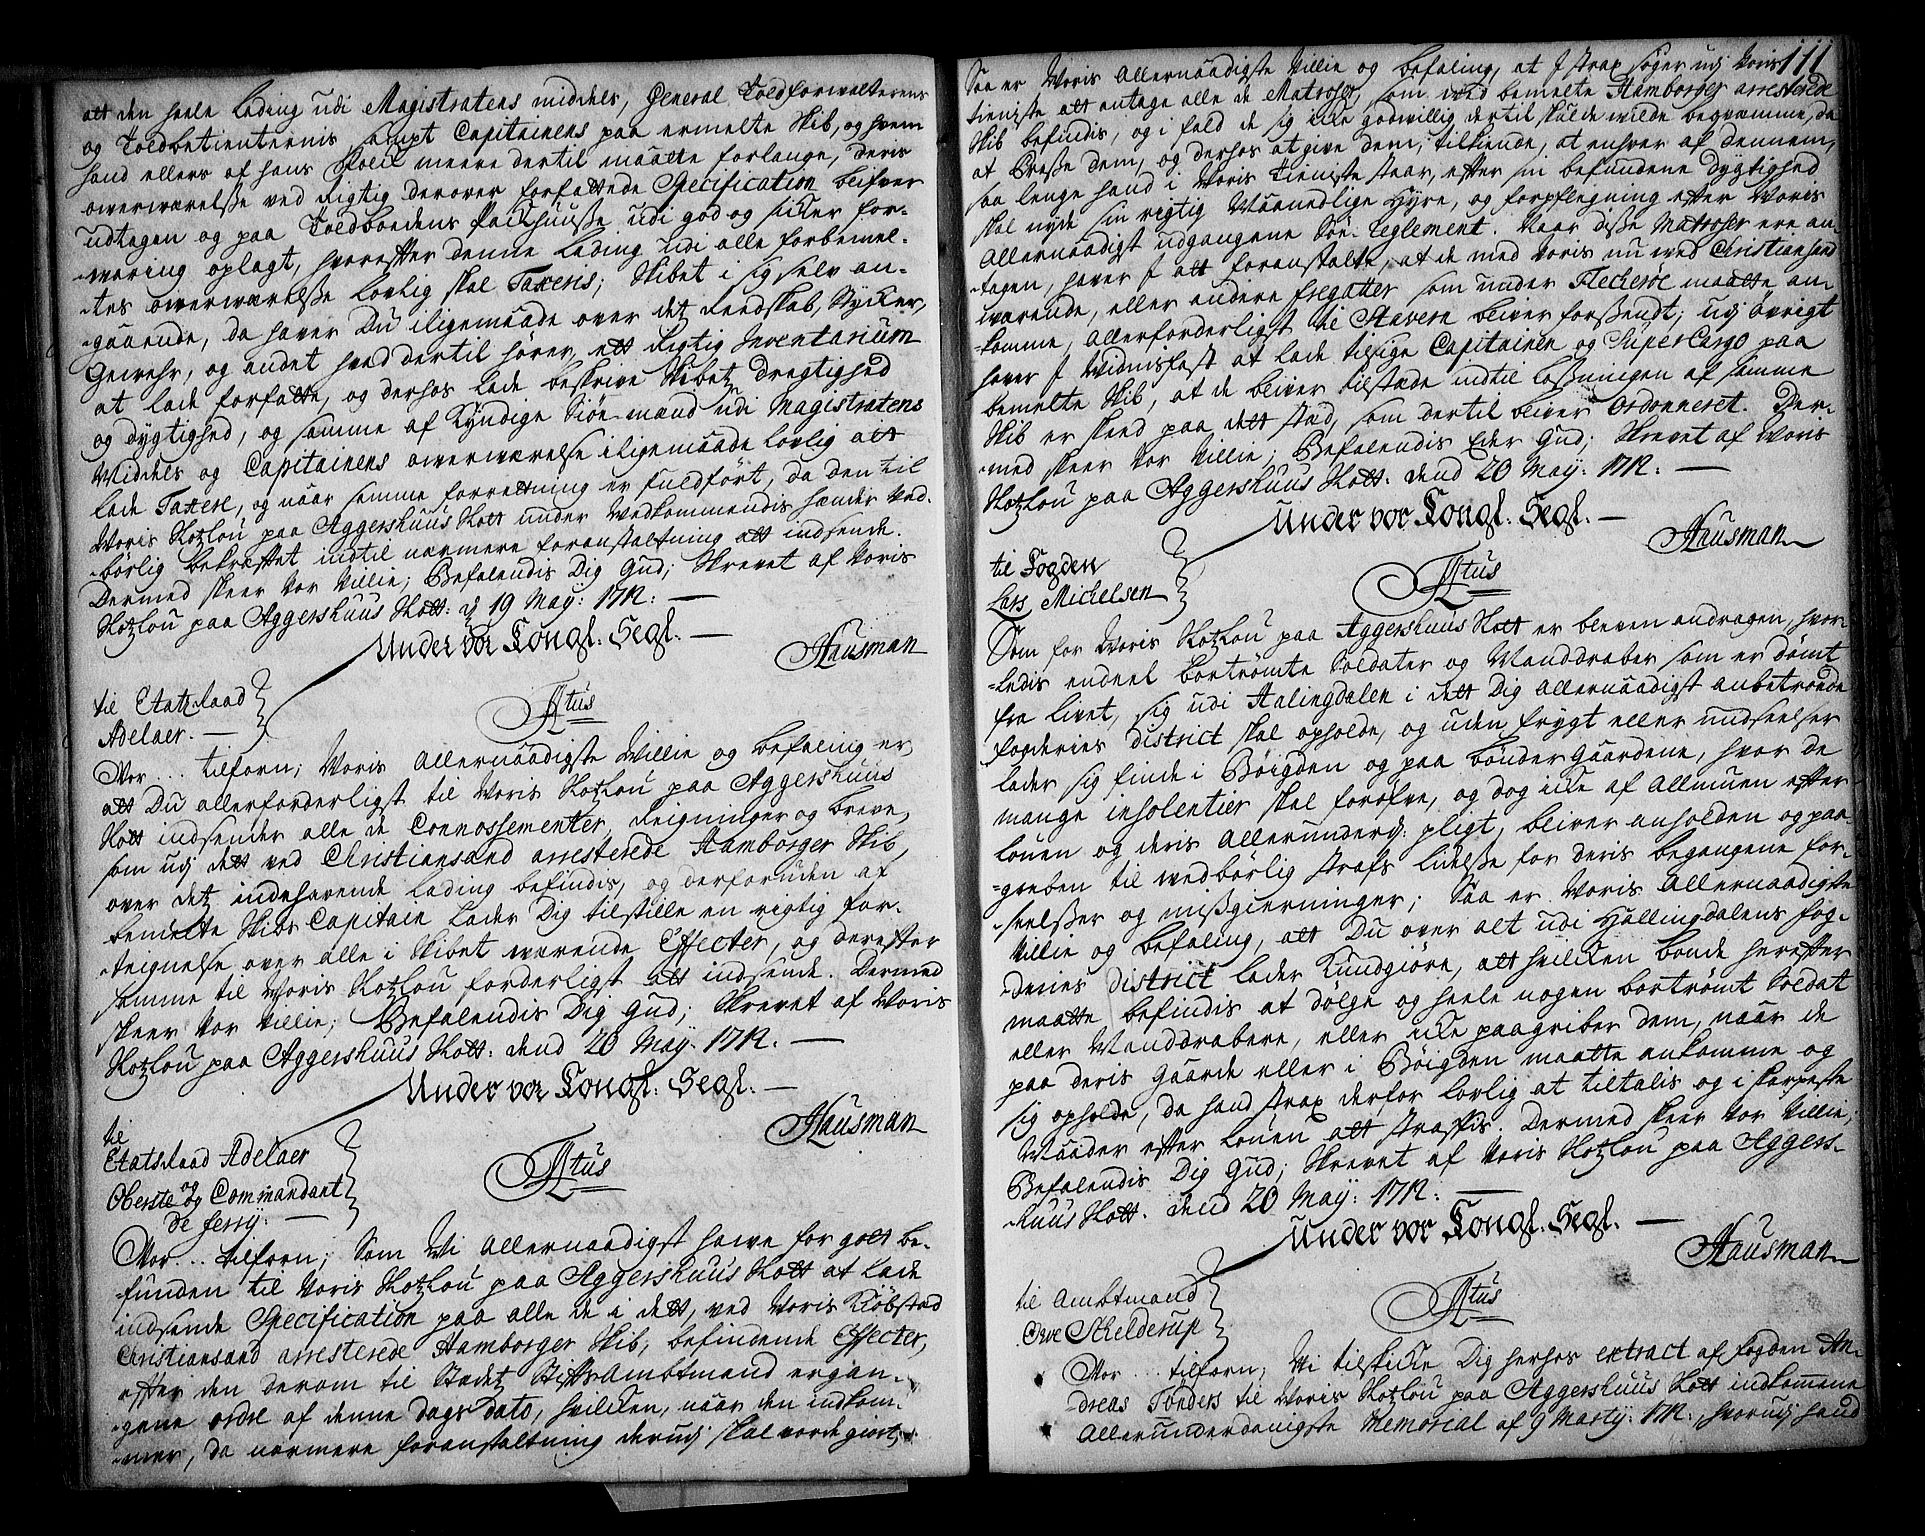 att den heele Lading udi Magistratens middels, General Toldforwalterens
og Toldbetienternis sampt Capitainens paa ermelte Skib, og hvem
hand ellers af hans Folck meere dertil maatte forlange, deris
overwærelße ved Rigtig derover forfattede Specification blifver
udtagen og paa Toldboedens Packhuuße udi god og sicker for-
-waring oplagt, hvorefter denne Lading udi alle forbemel-
-tes overwærelße lovlig skal Taxeris; Skibet i sig selv an-
-gaaende, da hawer Du iligemaade over det Redskab, Stycker,
Gewehr, og andet hvad dertil hører, ett Rigtig Inventarium
at lade forfatte, og derhos lade beskrive Skibetz Dregtighed
og dygtighed, og samme af Kyndige Siøe-mænd udi Magistratens
Middels og Capitainens overwærelse iligemaade lovlig att
lade Taxere, og naar samme forretning er fuldført, da den til
Woris Slotzlou paa Aggershuus Slott under Wedkommendis hænder ved-
-børlig bekreftet indtil nærmere foranstaltning att indsende.
Dermed skeer Vor Villie; Befalendis Dig Gud; Skrevet af Voris
Slotzlou paa Aggershuus Slott: d 19 Maÿ: 1712: —
Under vor Kongl: Segl. —
Hausman
til Etatz Raad
Adelaer. —
Atus
Vor ... tilforn; Woris Allernaadigste Willie og befaling er
att Du allerforderligst til Voris Slotzlou paa Aggershuus
Slott indsender alle de Connossementer, Reigninger og breve,
som udj dett ved Christiansand arresterede Hamborger Skib,
over detz indehavende Lading befindis, og derforuden af
bemelte Skibs Capitain Lader Dig tilstille en rigtig for-
-teignelse over alle i Skibet wærende Effecter, og derefter
samme til Voris Slotzlou forderligst att indsende. Dermed
skeer Vor Villie; Befalendis Dig Gud; Skrevet af Voris
Slotzlou paa Aggershuus Slott: dend 20 Maÿ: 1712. —
Under vor Kongl: Segl. —
Hausman
til
Etats Raad Adelaer
Oberste og Commandant
de Ferrÿ: —
Atus
Vor ... tilforn; Som Vi Allernaadigst hawe for gott be-
-funden til Voris Slotzlou paa Aggershuus Slott at lade
indsende Specification paa alle de i dett, ved Voris Kiøbstad
Christiansand arresterede Hamborger Skib, befindende Effecter,
efter den derom til Stedetz StiftsAmbtmand ergan-
-gene ordre af denne Dags Dato, hvilcken, naar den indkom-
-mer, da nærmere foranstaltning derudj skal vorde giort;
111
Saa er Woris Allernaadigste Villie og befaling, at I strax søger udj Voris
tieniste att antage alle de Matroser, som ved bemelte Hamborger arresterede
Skib befindis, og i fald de sig icke godwillig dertil skulde wilde beqwæmme, da
at Preße dem, og derhos at give dem tilkiende, at enhver af dennem,
saa lenge hand i Voris Tieniste staar, efter sin befundene Dygtighed
skal nyde sin rigtig Maanedlige Hyre, og forpflegning efter Voris
Allernaadigst udgangene Søe-Reglement. Naar diße Matroser ere an-
-tagen, haver I att foranstalte, at de med Voris nu ved Christiansand
wærende, eller andere Fregatter som under Flecherøe maatte an-
-komme, Allerforderligst til Stavern bliver forßendt; udj øvrigt
haver I Widnisfast at lade tilsige Capitainen og SuperCargo paa
bemelte Skib, at de bliver tilstæde indtil Loßningen af samme
Skib er skeed paa dett stæd, som dertil bliver ordonneret. Der-
-med skeer Vor Villie; Befalendis Eder Gud; Skrevet af Voris
Slotzlou paa Aggershuus Slott: dend 20 Maÿ: 1712: —
Under vor Kongl: Segl. —
Hausman
til Fogden
Lars Michelsen
Atus
Som for Woris Slotzlou paa Aggershuus Slott er bleven andragen, hvor-
-ledis endeel bortrømte Soldater og Manddraber som er dømt
fra livet, sig udi Halingdalen i dett Dig Allernaadigst anbetroede
Fogderies District skal opholde, og uden frygt eller undseelser
lader sig finde i Bøigden og paa bønder Gaardene, hvor de
mange insolentier skal forøfve, og dog icke af Allmuen efter
louen og deris Allerunderd: pligt, bliver anholden og paa-
-greben til wedbørlig strafs lidelße for deris begangene for-
-seelßer og mißgierninger; Saa er Voris Allernaadigste
Villie og befaling, att Du over alt udi Hallingdalens Fog-
-deries District lader Kundgiøre, att hvilcken bonde herefter
maatte befindis at dølge og heele nogen bortrømt Soldat
eller Manddrabere, eller icke paagriber dem, naar de
paa deris Gaarde eller i Bøigden maatte ankomme og
sig opholde, da hand strax derfor lovlig at tiltalis og i skarpeste
Maader efter louen att straffis. Dermed skeer Vor Villie;
Befalendis Dig Gud; Skrevet af Voris Slotzlou paa Aggers-
-huus Slott: dend 20 Maÿ: 1712: —
Under vor Kongl: Segl. —
Hausman
til Ambtmand
Ove Schelderup
Atus
Vor ... tilforn; Vi tilskicke Dig herhos extract af Fogden An-
-dreas Tønders til Voris Slotzlou paa Aggershuus Slott indkommene
Allerunderdanigste Memorial af 9 Martÿ: 1712: hvorudj hand